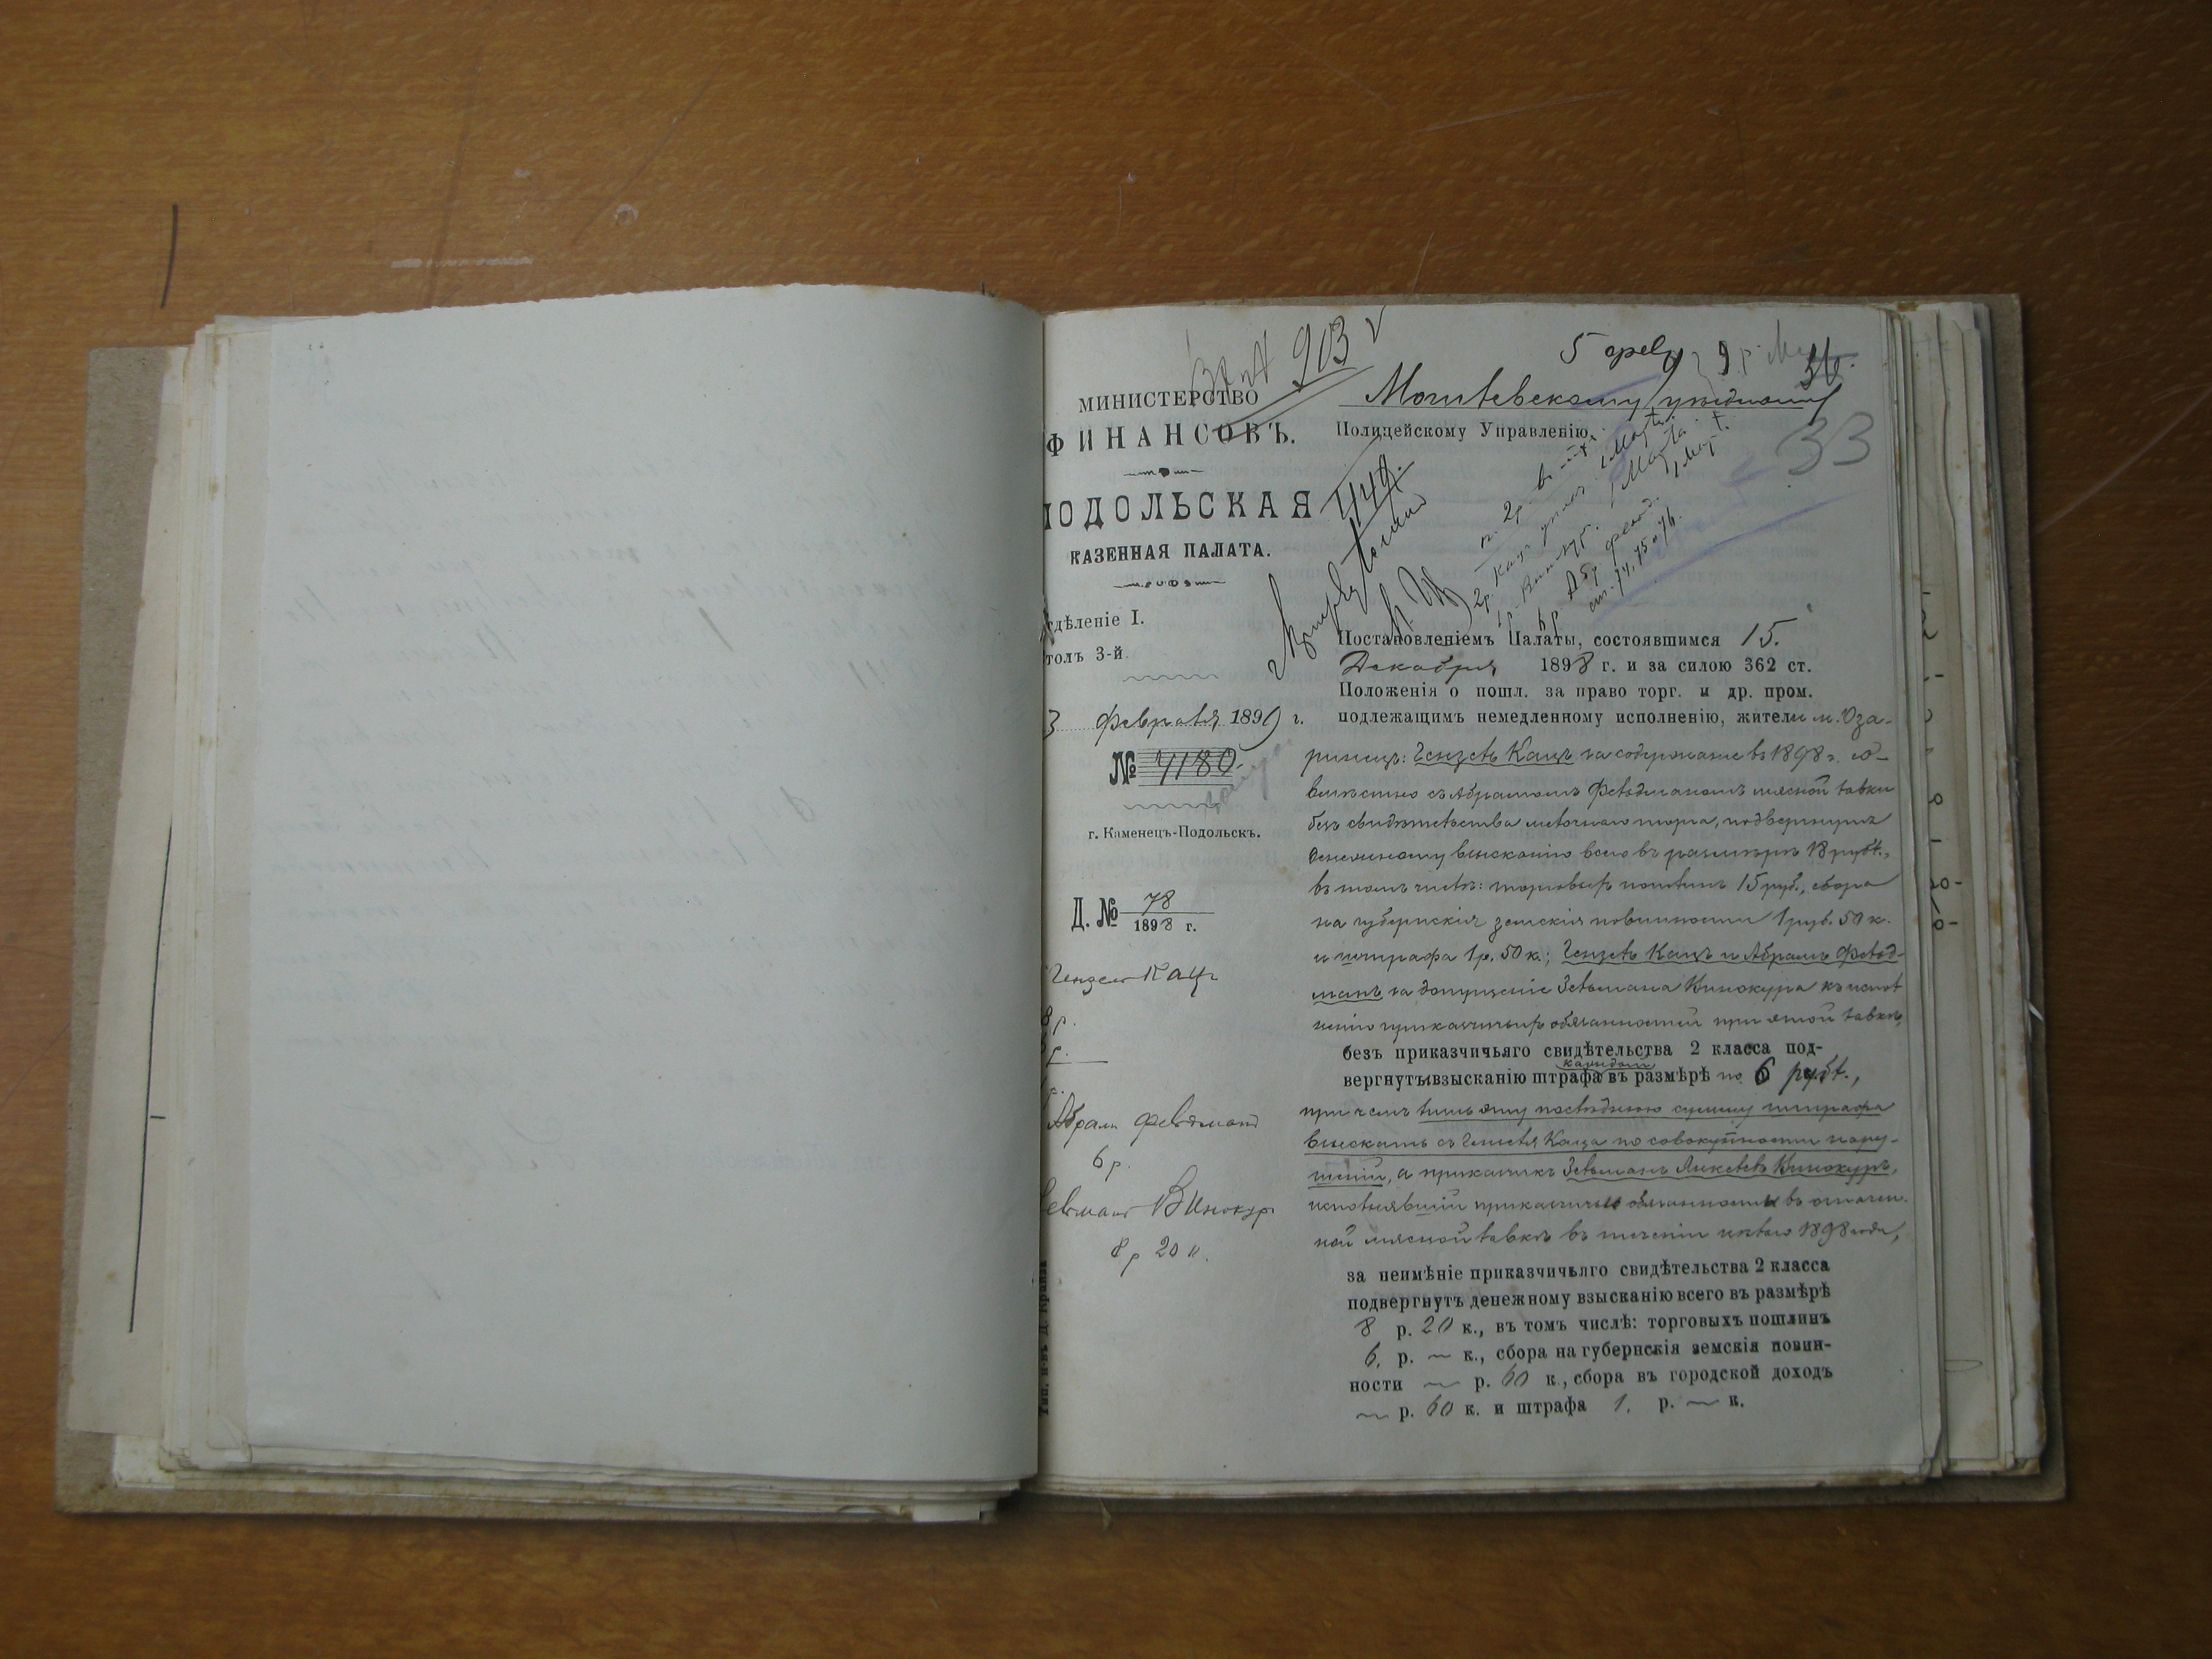 903
5 февр
МИНИСТЕРСТВО
ФИНАНСОВЪ.
ПОДОЛЬСКАЯ
КАЗЕННАЯ ПАЛАТА.
тдѣленіе I.
толъ 3-й
3 февраля 1899 г.
№ 4180.
г. Каменецъ-Подольскъ.
Д. № 78
1898 г.
Гензель Кацъ
8 р.
Абрам Фельдманъ
6 р.
Зельманъ Винокуръ
8 р 20 к.
Могилевскому уѣздному
Полицейскому Управленію.
33
1 Марта
ст. 74, 75 и 76.
Постановленіемъ Палаты, состоявшимся 15.
Декабря 1898 г. и за силою 362 ст.
Положенія о пошл. за право торг. и др. пром.
подлежащимъ немедленному исполненію, жители м. Оза-
ринецъ: Гензель Кацъ за содержаніе въ 1898 г. со-
вмѣстно съ Абрамомъ Фельдманомъ мясной лавки
безъ свидѣтельства мелочнаго торга, подвергнутъ
денежному взысканію всего въ размѣрѣ 18 рубл.,
въ томъ числѣ: торговыхъ пошлинъ 15 руб., сбора
на губернскія земскія повинности 1 руб. 50 к.
и штрафа 1 р. 50 к.; Гензель Кацъ и Абрамъ Фельд-
манъ за допущеніе Зельмана Винокура къ испол
ненію приказчичьихъ обязанностей при этой лавкѣ,
безъ приказчичьяго свидѣтельства 2 класса под-
вергнуты взысканію штрафа въ размѣрѣ по каждый 6 рубл.,
при чемъ лишь эту послѣднюю сумму штрафа
взыскать съ Гензеля Каца по совокупности нару-
шеній, а приказчикъ Зельманъ Янкелевъ Винокуръ,
исполнявшій приказчичьи обязанности въ означен-
ной мясной лавкѣ въ теченіи цѣлаго 1898 года,
за неимѣніе приказчичьяго свидѣтельства 2 класса
подвергнутъ денежному взысканію всего въ размѣрѣ
8 р. 20 к., въ томъ числѣ: торговыхъ пошлинъ
6. р. ~ к., сбора на губернскія земскія повин-
ности ~ р. 60 к., сбора въ городской доходъ
~ р. 60 к. и штрафа 1. р. ~ к.